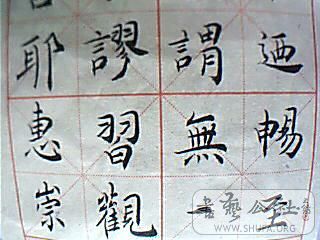 迺暢至
謂無一
謬習觀
耶惠崇
書藝公社
WWW.SHUFA.ORG